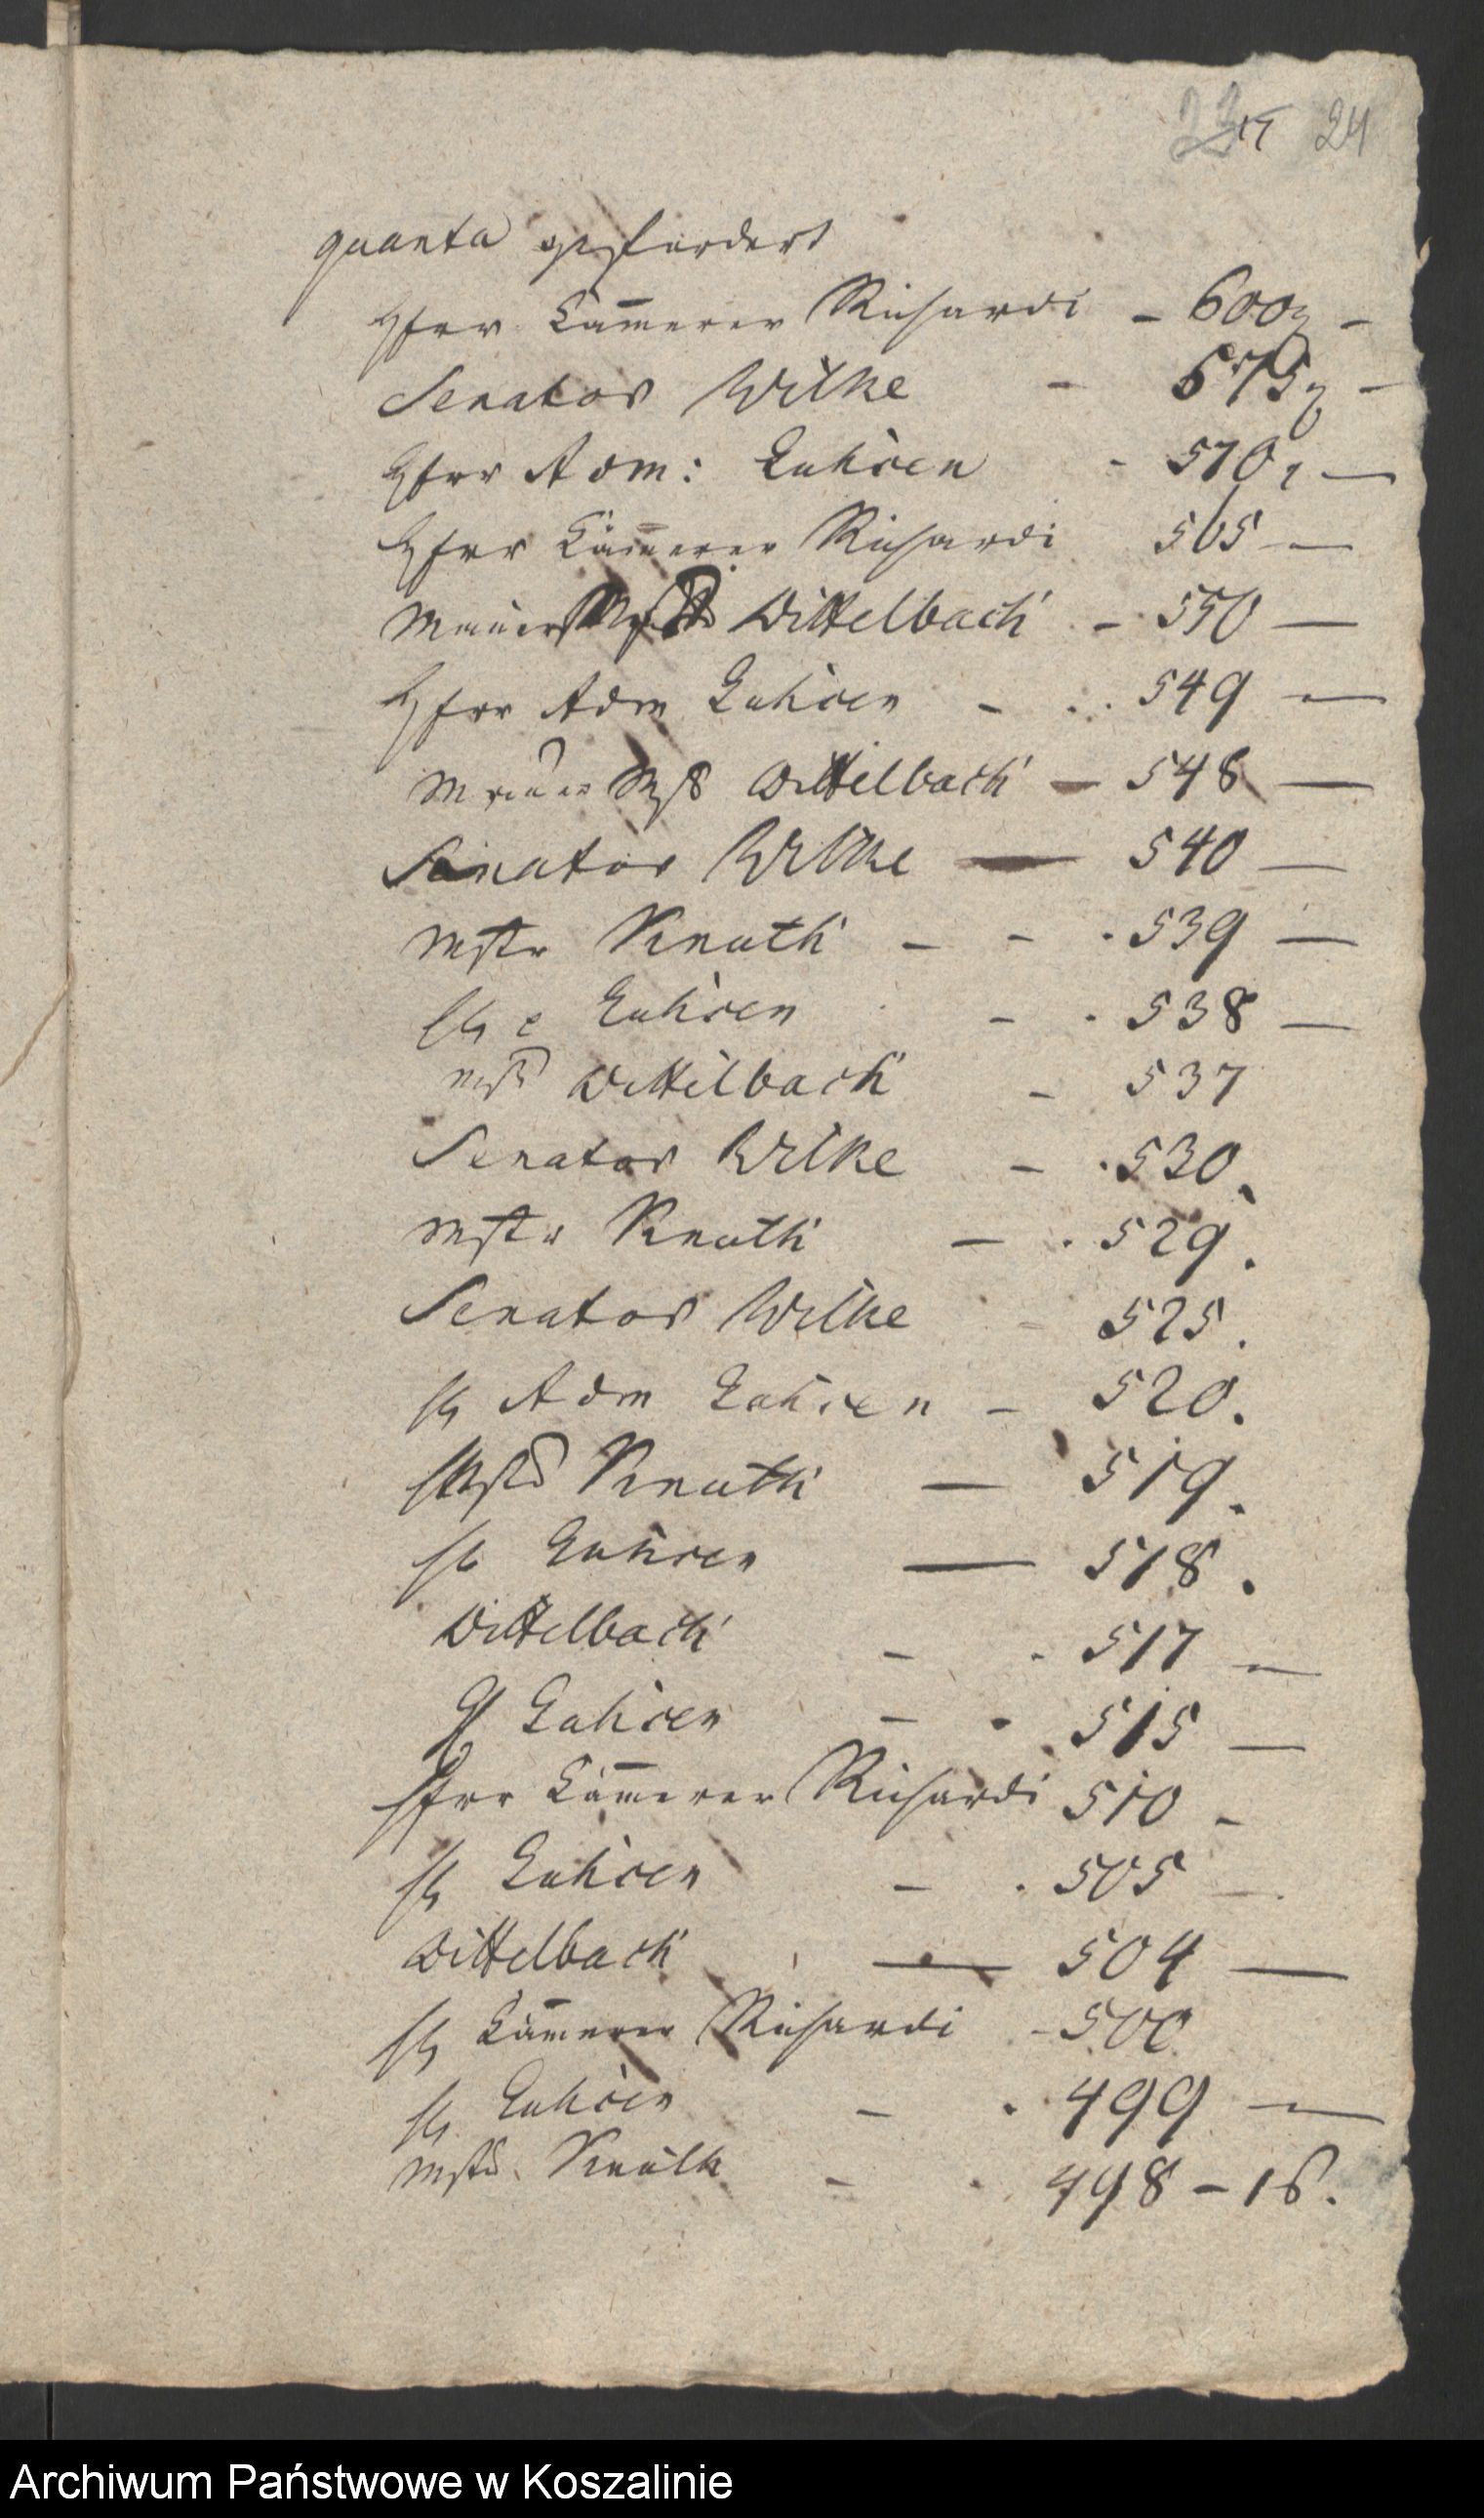 24
quanta gefordert
Herr Cammerer Richardi – 600 –
Senator Wilke – 575 –
Herr Adm: Luhsen – 570 –
Herr Cämmerer Richardi 565 –
Mauer Dittelbach – 550 –
Herr Adm Luhsen – 549 –
Mauer Mstr Dittelbach – 548 –
Senator Wilke – 540 –
Mstr Knuth – – 539 –
H Luhsen – 538 –
Mstr Dittelbach – 537
Senator Wilke – 530.
Mstr Knuth – 529.
Senator Wilke 525.
H Adm Luhsen – 520.
Mstr Knuth – 519.
H Luhsen – 518.
Dittelbach – 517 –
H Luhsen – 515 –
Herr Cämmerer Richardi 510 –
H Luhsen – 505 –
Dittelbach – 504 –
H Cämmerer Richardi – 500
H Luhsen – 499 –
Mstr. Knuth – 498 – 16.
Archiwum Państwowe w Koszalinie